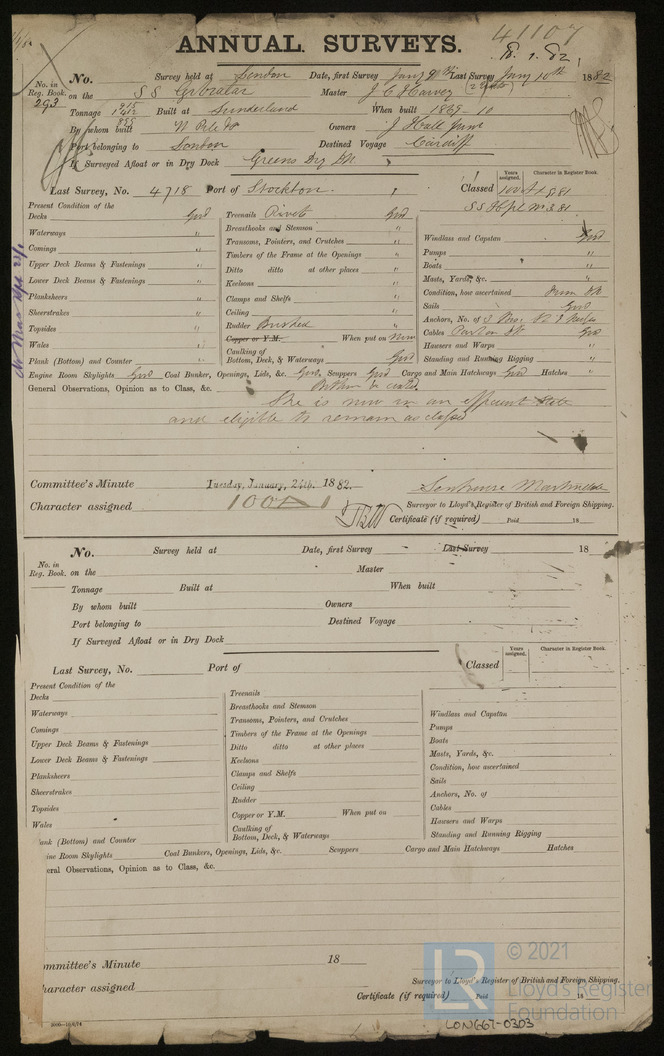 41107
ANNUAL SURVEYS.
18.1.82
No. Survey held at London Date, first Survey Jany 9th Last Survey Jany 10th 1882
No. in Reg. Book. 293 on the SS Gibraltar Master J C Harvey
Tonnage Built at Sunderland When built 1869-10
By whom built W Pile & Co Owners J Hall Junr
Port belonging to London Destined Voyage Cardiff
If Surveyed Afloat or in Dry Dock Greens Dry Dk
Last Survey, No. 4718 Port of Stockton. Classed Years assigned. Character in Register Book. 100A1
Present Condition of the
Decks Good
Waterways "
Comings "
Upper Deck Beams & Fastenings "
Lower Deck Beams & Fastenings "
Planksheers "
Sheerstrakes "
Topsides "
Wales "
Plank (Bottom) and Counter "
Treenails Rivets Good
Breasthooks and Stemson "
Transoms, Pointers, and Crutches "
Timbers of the Frame at the Openings "
Ditto ditto at other places "
Keelsons "
Clamps and Shelfs "
Ceiling "
Rudder Bushed "
Copper or Y.M. When put on now
Caulking of
Bottom, Deck, & Waterways Good
Windlass and Capstan Good
Pumps "
Boats "
Masts, Yards, &c. "
Condition, how ascertained from Dk
Sails Good
Anchors, No. of
Cables Good
Hawsers and Warps "
Standing and Running Rigging "
Engine Room Skylights Good Coal Bunker, Openings, Lids, &c. Good Scuppers Good Cargo and Main Hatchways Good Hatches "
General Observations, Opinion as to Class, &c. Bottom coated.
She is now in an efficient state
and eligible to remain as classed
Committee's Minute Tuesday, January, 24th. 1882.
Character assigned 100A1
Surveyor to Lloyd's Register of British and Foreign Shipping.
Certificate (if required) Paid 18
No. Survey held at Date, first Survey Last Survey 18
No. in Reg. Book. on the Master
Tonnage Built at When built
By whom built Owners
Port belonging to Destined Voyage
If Surveyed Afloat or in Dry Dock
Last Survey, No. Port of Classed Years assigned. Character in Register Book.
Present Condition of the
Decks
Waterways
Comings
Upper Deck Beams & Fastenings
Lower Deck Beams & Fastenings
Planksheers
Sheerstrakes
Topsides
Wales
ank (Bottom) and Counter
Treenails
Breasthooks and Stemson
Transoms, Pointers, and Crutches
Timbers of the Frame at the Openings
Ditto ditto at other places
Keelsons
Clamps and Shelfs
Ceiling
Rudder
Copper or Y.M. When put on
Caulking of
Bottom, Deck, & Waterways
Windlass and Capstan
Pumps
Boats
Masts, Yards, &c.
Condition, how ascertained
Sails
Anchors, No. of
Cables
Hawsers and Warps
Standing and Running Rigging
ine Room Skylights Coal Bunkers, Openings, Lids, &c. Scuppers Cargo and Main Hatchways Hatches
eral Observations, Opinion as to Class, &c.
ommittee's Minute 18
haracter assigned
Surveyor to Lloyd's Register of British and Foreign Shipping.
Certificate (if required) Paid 18
LR © 2021
Lloyd's Register
Foundation
LON667-0303